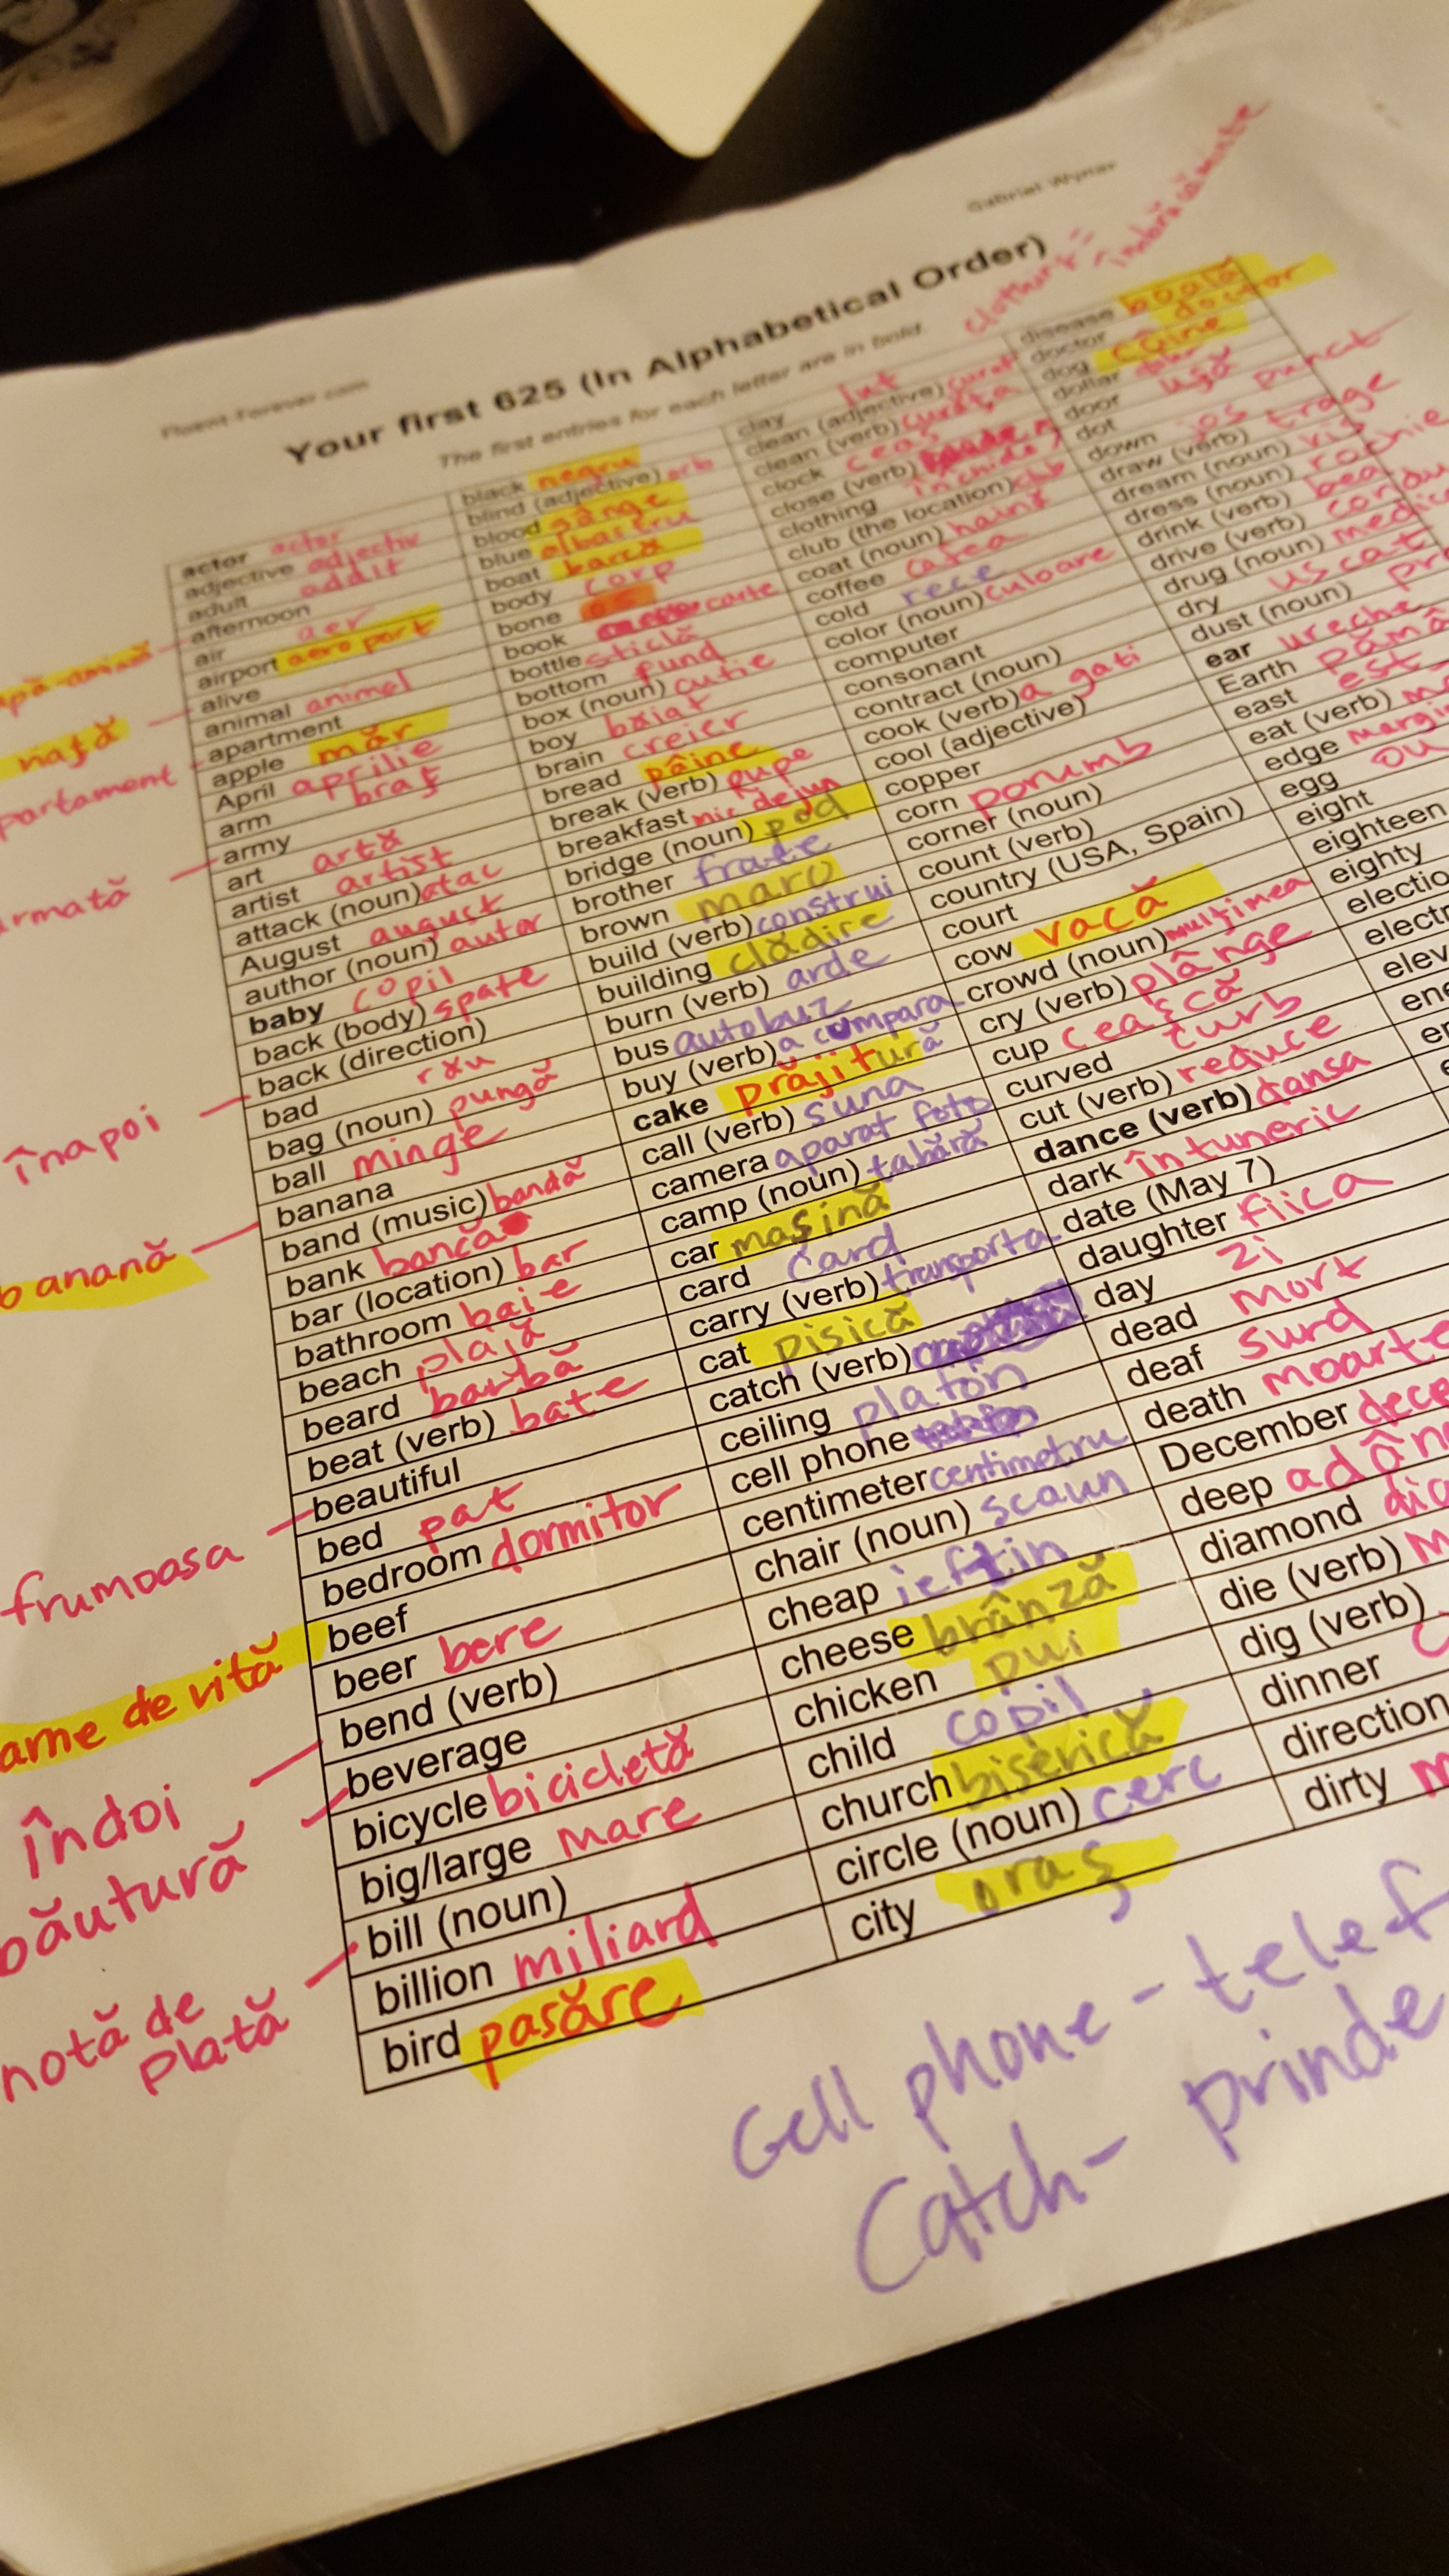 Fluent-Forever.com
Gabriel Wyner
Your first 625 (In Alphabetical Order)
The first entries for each letter are in bold.
clothing = îmbrăcăminte
actor actor
adjective adjectiv
adult addit
afternoon
air aer
airport aeroport
alive viață
animal animal
apartment partament
apple măr
April aprilie
arm braț
army armată
art artă
artist artist
attack (noun) atac
August august
author (noun) autor
baby copil
back (body) spate
back (direction) înapoi
bad rău
bag (noun) pungă
ball minge
banana banană
band (music) bandă
bank bancă
bar (location) bar
bathroom baie
beach plajă
beard barbă
beat (verb) bate
beautiful frumoasa
bed pat
bedroom dormitor
beef arne de vită
beer bere
bend (verb) îndoi
beverage băutură
bicycle bicicletă
big/large mare
bill (noun) notă de plată
billion miliard
bird pasăre
black negru
blind (adjective) orb
blood sânge
blue albastru
boat barcă
body corp
bone os
book carte
bottle sticlă
bottom fund
box (noun) cutie
boy băiat
brain creier
bread pâine
break (verb) rupe
breakfast mic dejun
bridge (noun) pod
brother frate
brown maro
build (verb) construi
building clădire
burn (verb) arde
bus autobuz
buy (verb) a cumpara
cake prăjitură
call (verb) suna
camera aparat foto
camp (noun) tabără
car mașină
card card
carry (verb) transporta
cat pisică
catch (verb)
ceiling platon
cell phone
centimeter centimetru
chair (noun) scaun
cheap ieftin
cheese brânză
chicken pui
child copil
church biserică
circle (noun) cerc
city oraș
clay lut
clean (adjective) curat
clean (verb) curăța
clock ceas
close (verb) închide
clothing
club (the location) club
coat (noun) haină
coffee cafea
cold rece
color (noun) culoare
computer
consonant
contract (noun)
cook (verb) a gati
cool (adjective)
copper
corn porumb
corner (noun)
count (verb)
country (USA, Spain)
court
cow vacă
crowd (noun) mulțimea
cry (verb) plânge
cup ceașcă
curved curb
cut (verb) reduce
dance (verb) dansa
dark întuneric
date (May 7)
daughter fiica
day zi
dead mort
deaf surd
death moarte
December dece
deep adân
diamond dia
die (verb) m
dig (verb)
dinner c
direction
dirty m
disease boală
doctor doctor
dog câine
dollar
door ușă
dot punct
down jos
draw (verb) trage
dream (noun) vis
dress (noun) rochie
drink (verb) bea
drive (verb) condu
drug (noun) medic
dry uscat
dust (noun) pr
ear ureche
Earth pămâ
east est
eat (verb) m
edge margi
egg ou
eight
eighteen
eighty
electio
electr
elev
ene
Cell phone - telef
Catch - prinde